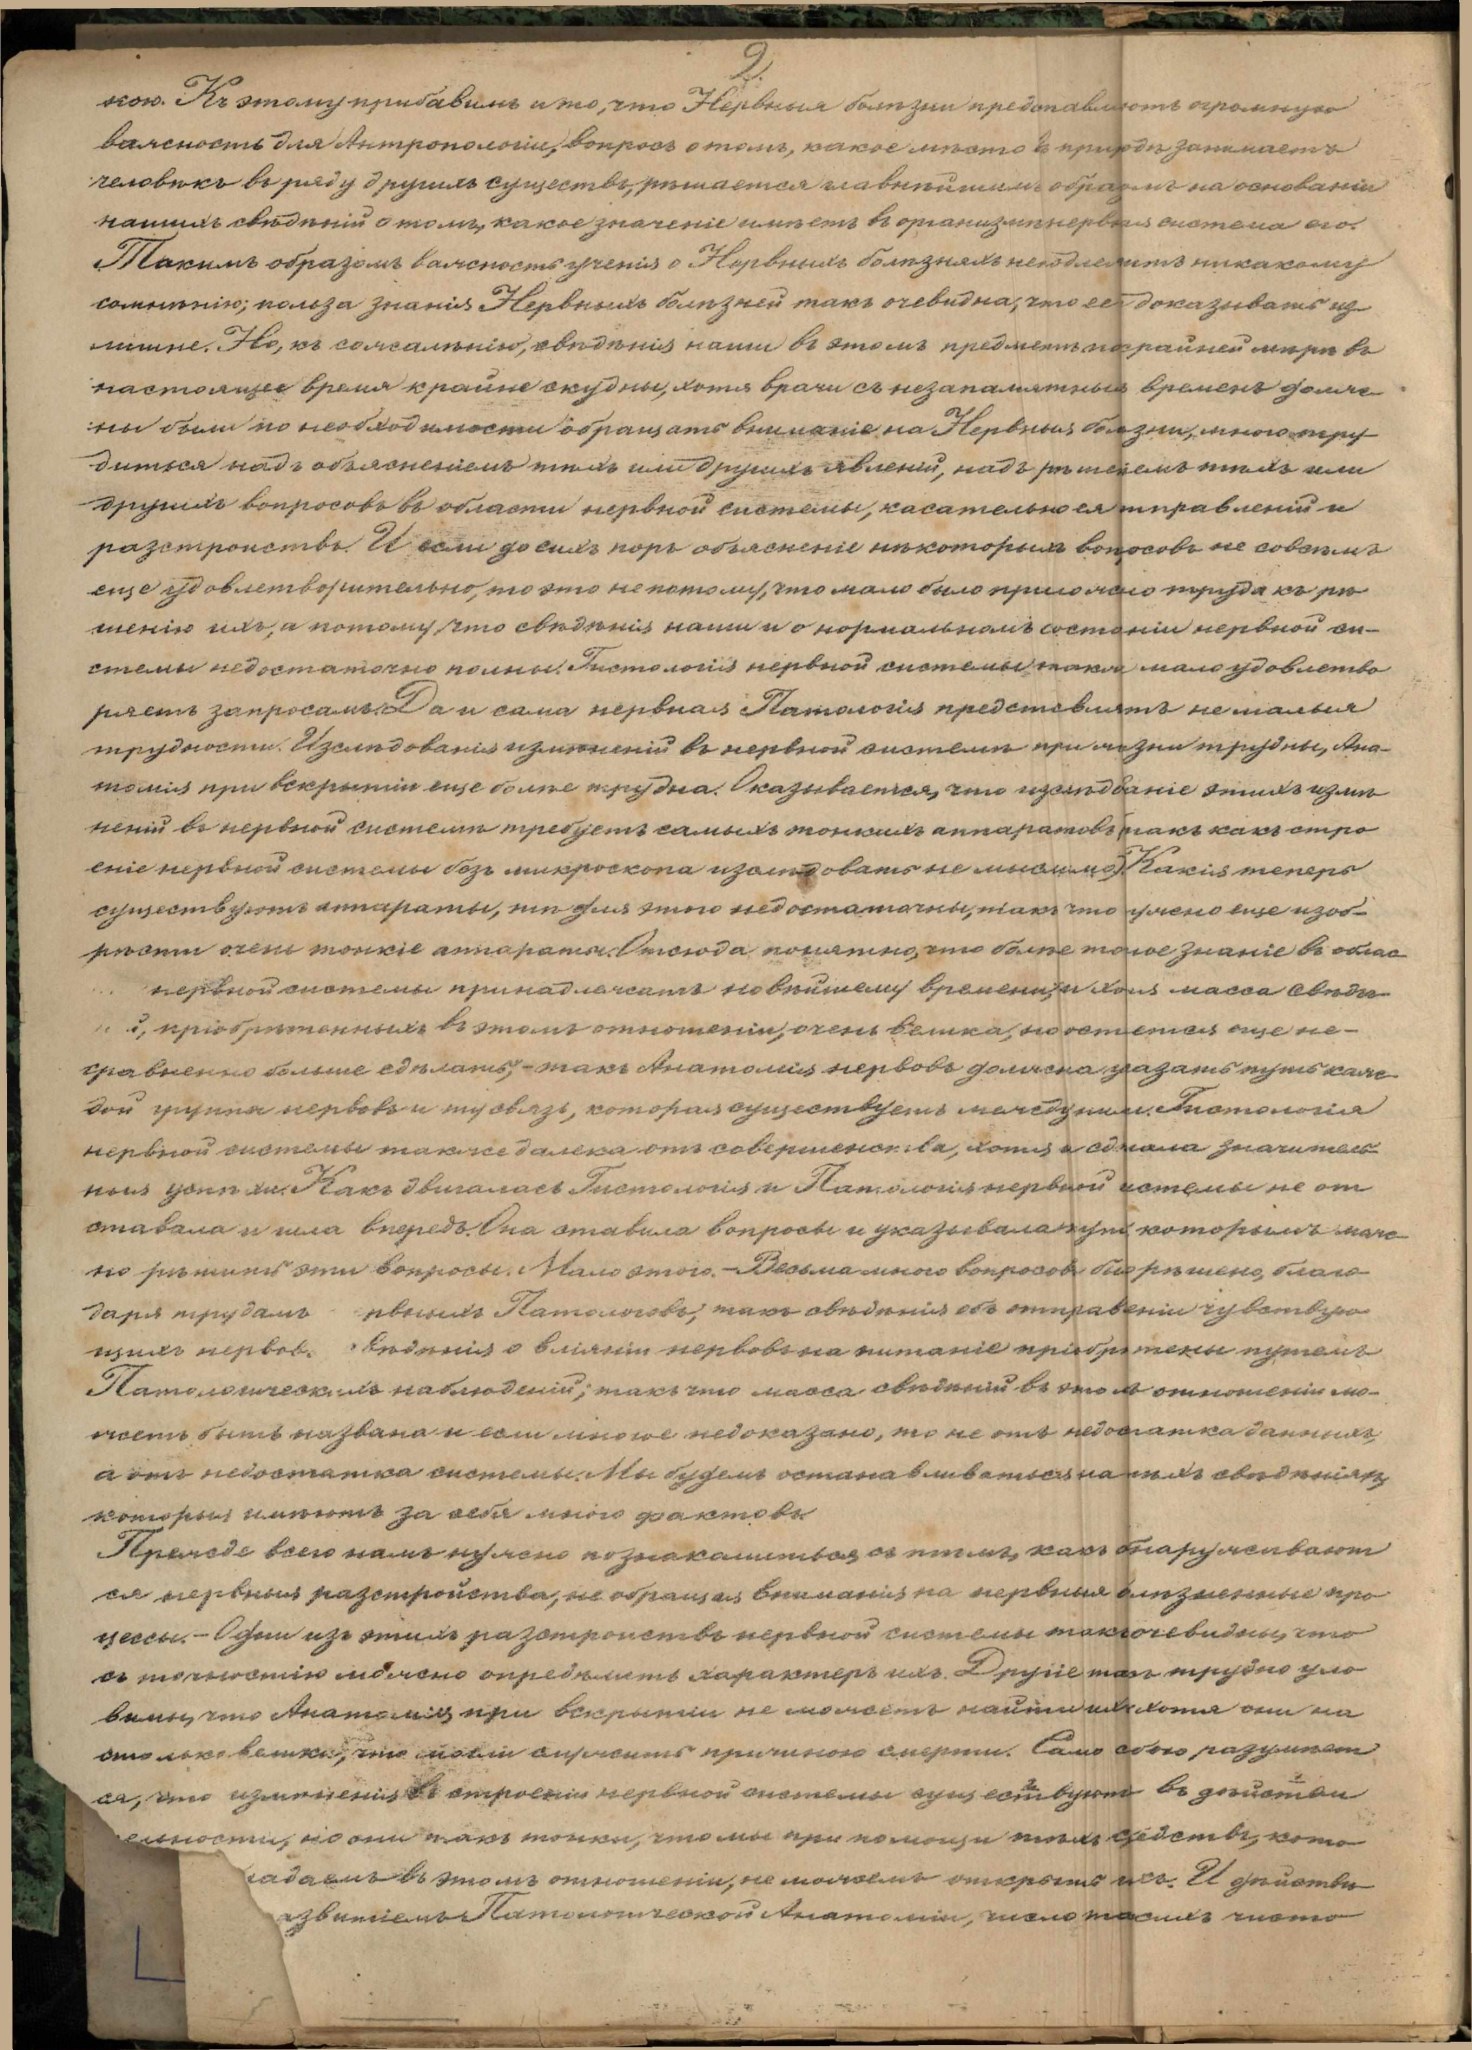 2.
кою. Къ этому прибавимъ и то, что Нервныя болѣзни представляютъ огромную
важность для Антропологіи, вопросъ о томъ, какое мѣсто въ природѣ занимаетъ
человѣкъ въ ряду другихъ существъ, рѣшается главнѣйшимъ образомъ на основаніи
нашихъ свѣдѣній о томъ, какое значеніе имѣетъ въ организмѣ нервная система его.
Такимъ образомъ важность ученія о Нервныхъ болѣзняхъ неподлежитъ никакому
сомнѣнію; польза знанія Нервныхъ болѣзней такъ очевидна, что ее доказывать из
лишне. Но, къ сожалѣнію, свѣдѣнія наши въ этомъ предметѣ по крайней мѣрѣ въ
настоящее время крайне скудны, хотя врачи съ незапамятныхъ временъ долж
ны были по необходимости обращать вниманіе на Нервныя болѣзни, много тру
диться надъ объясненіемъ тѣхъ или другихъ явленій, надъ рѣшеніемъ тѣхъ или
другихъ вопросовъ въ области нервной системы, касательно ея отправленій и
разстройствъ. И если до сихъ поръ объясненіе нѣкоторыхъ вопросовъ не совсѣмъ
еще удовлетворительно, то это не потому, что мало было приложено труда къ рѣ
шенію ихъ, а потому, что свѣдѣнія наши и о нормальномъ состояніи нервной си-
стемы недостаточно полны. Гистологія нервной системы также мало удовлетво
ряетъ запросамъ. Да и сама нервная Патологія представляетъ не малыя
трудности. Изслѣдованія измѣненій въ нервной системѣ при жизни трудны, Ана-
томія при вскрытіи еще болѣе трудна. Оказывается, что изслѣдованіе этихъ измѣ
неній въ нервной системѣ требуетъ самыхъ тонкихъ аппаратовъ (такъ какъ стро
еніе нервной системы безъ микроскопа изслѣдовать не мыслимо) Какія теперь
существуютъ аппараты, тѣ для этого недостаточны, такъ что нужно еще изоб-
рѣсти очень тонкіе аппараты. Отсюда понятно, что болѣе точное знаніе въ облас
нервной системы принадлежатъ новѣйшему времени, и хотя масса свѣдѣ
й, пріобрѣтенныхъ въ этомъ отношеніи, очень велика, но остается еще не-
сравненно больше сдѣлать, – такъ Анатомія нервовъ должна указать путь каж
дой группы нервовъ и ту связь, которая существуетъ между ними. Гистологія
нервной системы также далека отъ совершенства, хотя и сдѣлала значитель
ныя успѣхи. Какъ двигалась Гистологія и Патологія нервной системы не от
ставала и шла впередъ. Она ставила вопросы и указывала пути которымъ мож
но рѣшить эти вопросы. Мало этого. – Весьма много вопросовъ было рѣшено, благо
даря трудамъ рвныхъ Патологовъ; такъ свѣдѣнія объ отправленіи чувствую
щихъ нервов. вѣдѣнія о вліяніи нервовъ на питаніе пріобрѣтены путемъ
Патологическихъ наблюденій; такъ что масса свѣдѣній въ этомъ отношеніи мо-
жетъ быть названа и если многое недоказано, то не отъ недостатка данныхъ,
а отъ недостатка системы. Мы будемъ останавливаться на тѣхъ свѣдѣніяхъ,
которыя имѣютъ за себя много фактовъ.
Прежде всего намъ нужно познакомиться съ тѣмъ, какъ обнаруживают
ся нервныя разстройства, не обращая вниманія на нервныя болѣзненные про
цессы. – Одни изъ этихъ разстроиствъ нервной системы такъ очевидны, что
съ точностію можно опредѣлить характеръ ихъ. Другіе такъ трудно уло
вимы, что Анатомія при вскрытіи не можетъ найти ихъ хотя они на
столько велики, что могли служить причиною смерти. Само собою разумѣет
ся, что измѣненія въ строеніи нервной системы существуютъ въ дѣйстви
ельности, но они такъ тонки, что мы при помощи тѣхъ средствъ, кото
ладаемъ въ этомъ отношеніи, не можемъ открыть ихъ. И дѣйстви
азвитіемъ Патологической Анатоміи, число такихъ чисто